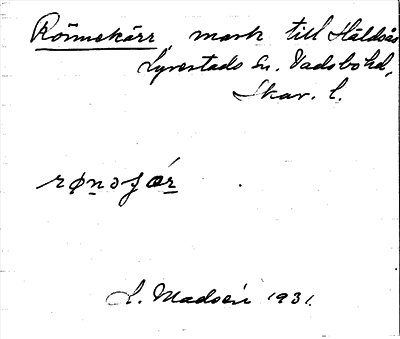 Rönnekärr, mark till Håldsås
Lyrestads sn. Vadsbo hd,
Skar. l.
rønəʃær
L. Madsén 1931.